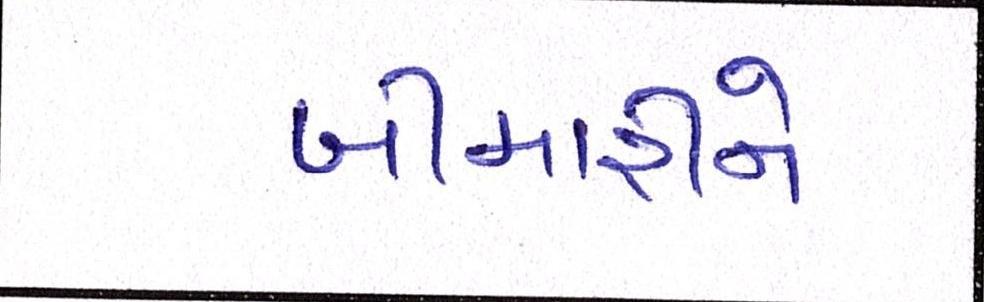 બીમારીને